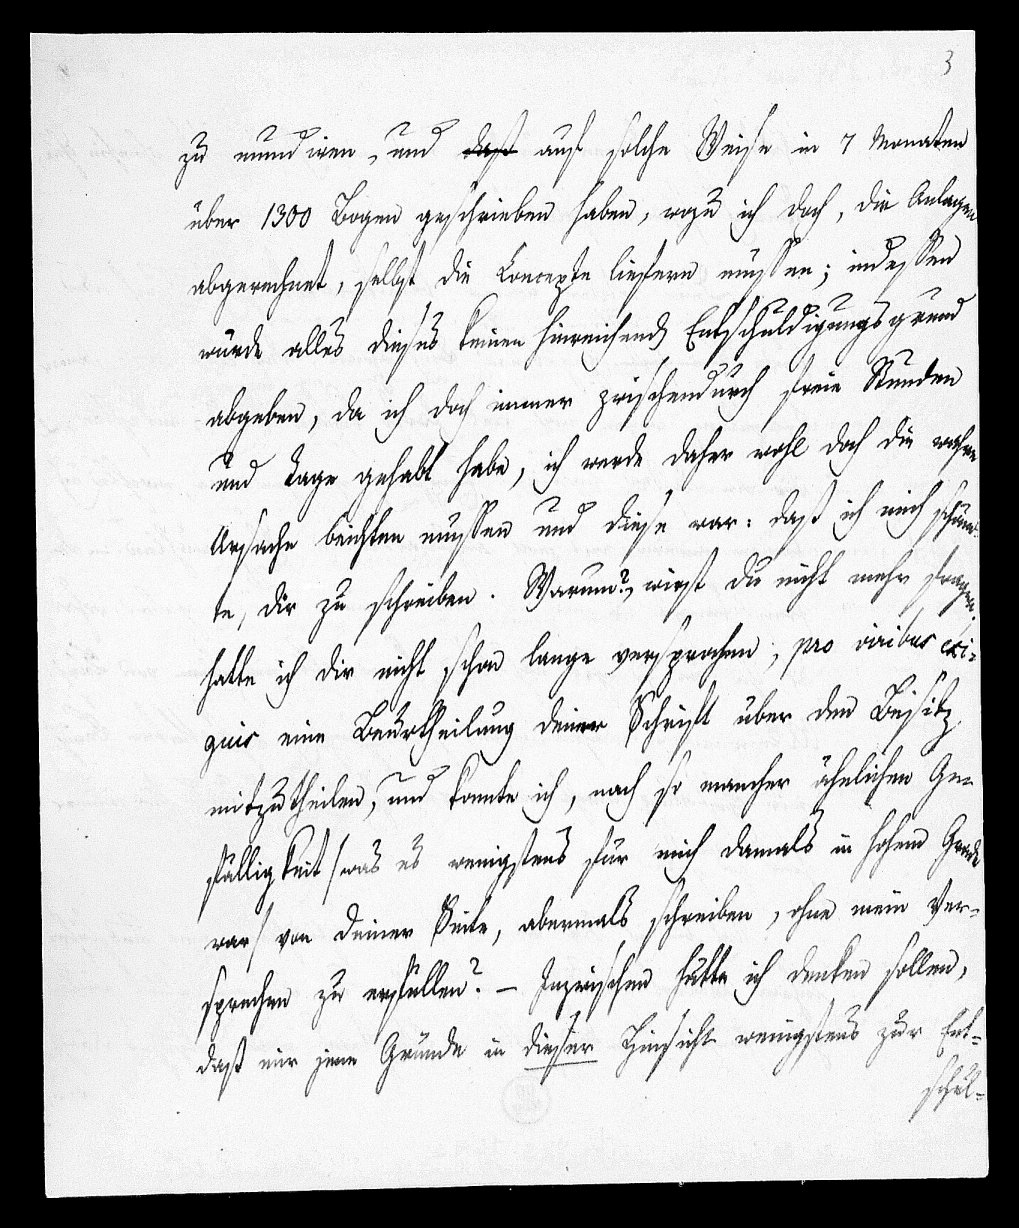 3
zu mundiren, und daß auf solche Weise in 7 Monaten
über 1300 Bogen geschrieben haben, wozu ich doch, die Anlagen
abgerechnet, selbst die Concepte liefern müssen; indessen
würde alles dieses keinen hinreichend Entschuldigungsgrund
abgeben, da ich doch immer zwischendurch freie Stunden
und Tage gehabt habe, ich werde daher wohl doch die wahre
Ursache beichten müssen und diese war: daß ich mich schäm-
te, dir zu schreiben. Warum?, wirst du nicht mehr fragen.
hatte ich dir nicht schon lange versprochen, pro viribus exi-
guis eine Beurtheilung deiner Schrift über den Besitz
mitzutheilen, und konnte ich, nach so mancher ähnlichen Ge-
fälligkeit /was es wenigstens für mich damals in hohem Grade
war/ von deiner Seite, abermals schreiben, ohne mein Ver-
sprechen zu erfüllen? – Inzwischen hätte ich denken sollen,
daß mir jene Gründe in dieser Hinsicht wenigstens zur Ent-
schul-